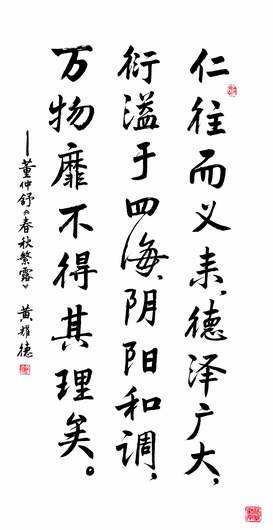 仁往而义来，德泽广大，
衍溢于四海，阴阳和调，
万物靡不得其理矣。
——董仲舒《春秋繁露》 黄耀德